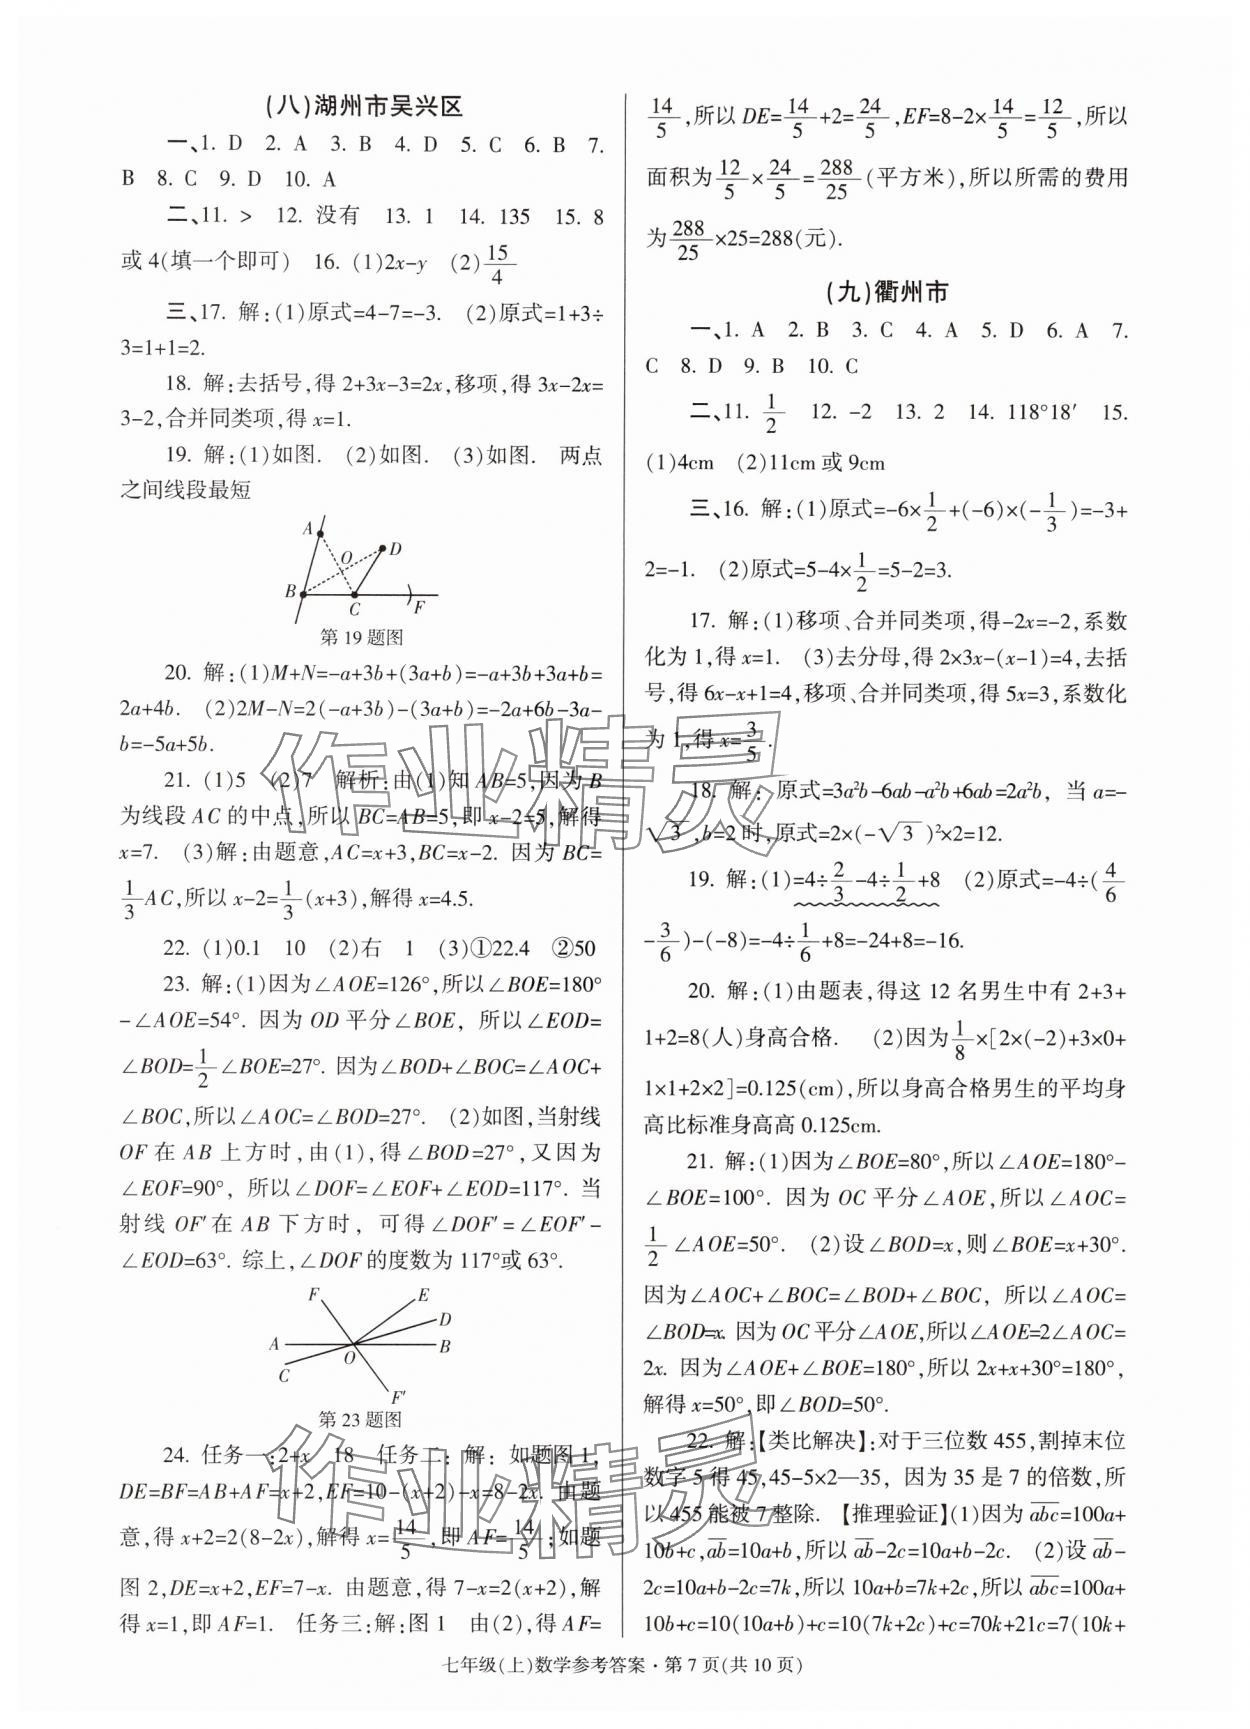 (八)湖州市吴兴区
一、1. D 2. A 3. B 4. D 5. C 6. B 7.
B 8. C 9. D 10. A
二、11. > 12. 没有 13. 1 14. 135 15. 8
或4(填一个即可) 16. (1)2x-y (2)15/4
三、17. 解:(1)原式=4-7=-3. (2)原式=1+3÷
3=1+1=2.
18. 解:去括号,得2+3x-3=2x,移项,得3x-2x=
3-2,合并同类项,得x=1.
19. 解:(1)如图. (2)如图. (3)如图. 两点
之间线段最短
A
O
D
B
C
F
第19题图
20. 解:(1)M+N=-a+3b+(3a+b)=-a+3b+3a+b=
2a+4b. (2)2M-N=2(-a+3b)-(3a+b)=-2a+6b-3a-
b=-5a+5b.
21. (1)5 (2)7 解析:由(1)知AB=5,因为B
为线段AC的中点,所以BC=AB=5,即x-2=5,解得
x=7. (3)解:由题意,AC=x+3,BC=x-2. 因为BC=
1/3AC,所以x-2=1/3(x+3),解得x=4.5.
22. (1)0.1 10 (2)右 1 (3)①22.4 ②50
23. 解:(1)因为∠AOE=126°,所以∠BOE=180°
-∠AOE=54°. 因为OD平分∠BOE, 所以∠EOD=
∠BOD=1/2∠BOE=27°. 因为∠BOD+∠BOC=∠AOC+
∠BOC,所以∠AOC=∠BOD=27°. (2)如图,当射线
OF在AB上方时,由(1),得∠BOD=27°,又因为
∠EOF=90°, 所以∠DOF=∠EOF+∠EOD=117°. 当
射线OF′在AB下方时, 可得∠DOF′=∠EOF′-
∠EOD=63°. 综上,∠DOF的度数为117°或63°.
F
E
D
A
B
O
C
F′
第23题图
24. 任务一:2+x 18 任务二: 解: 如题图1,
DE=BF=AB+AF=x+2,EF=10-(x+2)-x=8-2x. 由题
意,得x+2=2(8-2x),解得x=14/5,即AF=14/5;如题
图2,DE=x+2,EF=7-x. 由题意,得7-x=2(x+2),解
得x=1,即AF=1. 任务三:解:图1 由(2),得AF=
14/5,所以DE=14/5+2=24/5,EF=8-2×14/5=12/5,所以
面积为12/5×24/5=288/25(平方米),所以所需的费用
为288/25×25=288(元).
(九)衢州市
一、1. A 2. B 3. C 4. A 5. D 6. A 7.
C 8. D 9. B 10. C
二、11. 1/2 12. -2 13. 2 14. 118°18′ 15.
(1)4cm (2)11cm或9cm
三、16. 解:(1)原式=-6×1/2+(-6)×(-1/3)=-3+
2=-1. (2)原式=5-4×1/2=5-2=3.
17. 解:(1)移项、合并同类项,得-2x=-2,系数
化为1,得x=1. (3)去分母,得2×3x-(x-1)=4,去括
号,得6x-x+1=4,移项、合并同类项,得5x=3,系数化
为1,得x=3/5.
18. 解: 原式=3a²b-6ab-a²b+6ab=2a²b, 当a=-
√3,b=2时,原式=2×(-√3)²×2=12.
19. 解:(1)=4÷2/3-4÷1/2+8 (2)原式=-4÷(4/6
-3/6)-(-8)=-4÷1/6+8=-24+8=-16.
20. 解:(1)由题表,得这12名男生中有2+3+
1+2=8(人)身高合格. (2)因为1/8×[2×(-2)+3×0+
1×1+2×2]=0.125(cm),所以身高合格男生的平均身
高比标准身高高0.125cm.
21. 解:(1)因为∠BOE=80°,所以∠AOE=180°-
∠BOE=100°. 因为OC平分∠AOE,所以∠AOC=
1/2∠AOE=50°. (2)设∠BOD=x,则∠BOE=x+30°.
因为∠AOC+∠BOC=∠BOD+∠BOC, 所以∠AOC=
∠BOD=x. 因为OC平分∠AOE,所以∠AOE=2∠AOC=
2x. 因为∠AOE+∠BOE=180°,所以2x+x+30°=180°,
解得x=50°,即∠BOD=50°.
22. 解:【类比解决】:对于三位数455,割掉末位
数字5得45,45-5×2—35, 因为35是7的倍数,所
以455能被7整除. 【推理验证】(1)因为a̅b̅c̅=100a+
10b+c,a̅b̅=10a+b,所以a̅b̅-2c=10a+b-2c. (2)设a̅b̅-
2c=10a+b-2c=7k,所以10a+b=7k+2c,所以a̅b̅c̅=100a+
10b+c=10(10a+b)+c=10(7k+2c)+c=70k+21c=7(10k+
七年级(上)数学参考答案·第7页(共10页)
作业精灵
作业精灵